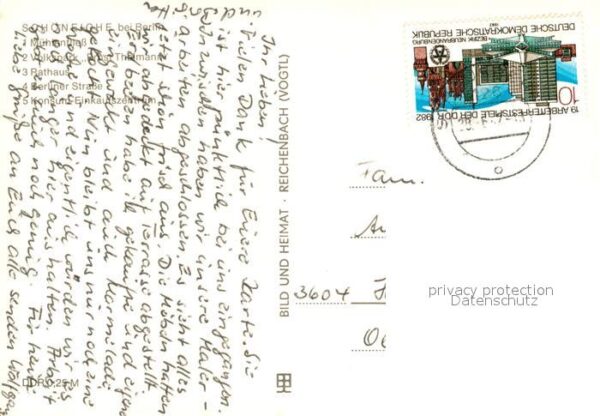 SCHÖNEICHE bei Berlin
1 Mühlenfließ
2 Volkspark "Ernst Thälmann"
3 Rathaus
4 Berliner Straße
5 Konsum-Einkaufszentrum
DDR 0,25 M
Ihr Lieben!
Vielen Dank für Eure Karte. Sie
ist hier pünktlich bei uns eingegangen.
Inzwischen haben wir unsere Maler-
arbeiten abgeschlossen. Es sieht alles
jetzt schon frisch aus. Die Möbel hatten
wir abgedeckt auf Terrasse abgestellt.
Erdbeeren habe ich gekaufte und eigene
eingeweckt und auch Marmelade
gekocht. Nun bleibt uns nur noch eine
Woche und eigentlich würden wir es
länger hier aushalten. Arbeit
noch genug. Für heute
viele Grüße an Euch alle senden Wolfgang
und
BILD UND HEIMAT · REICHENBACH (VOGTL)
DEUTSCHE DEMOKRATISCHE REPUBLIK
BEZIRK NEUBRANDENBURG
1982
10
19. ARBEITERFESTSPIELE DER DDR 1982
Fam.
3604
privacy protection
Datenschutz